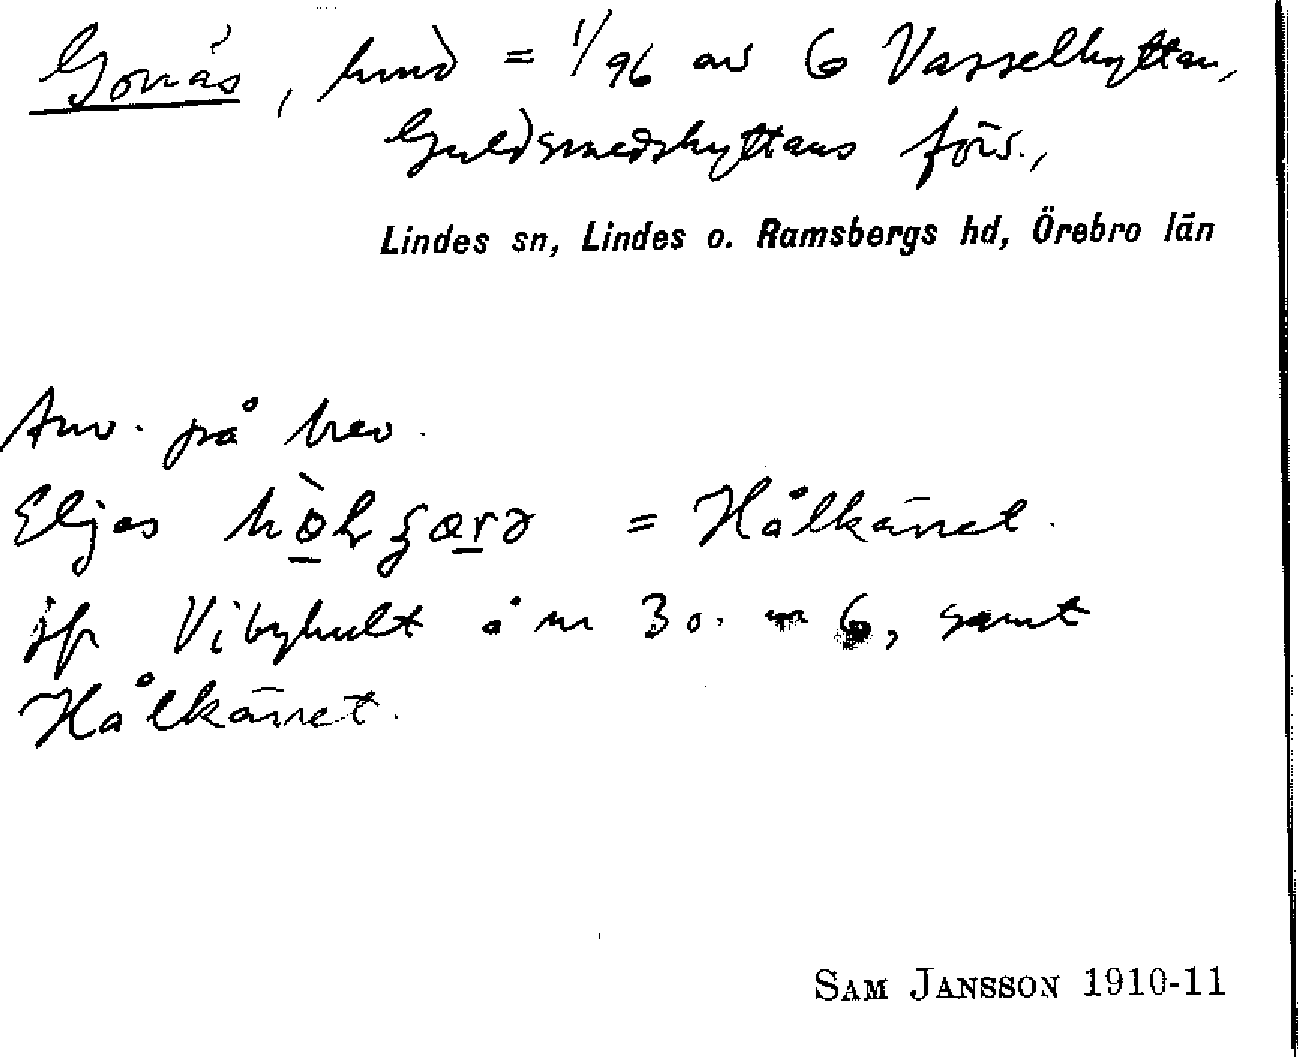 Gonäs, hmd = 1/96 av 6 Vasselhyttan,
Guldsmedshyttans förs.,
Lindes sn, Lindes o. Ramsbergs hd, Örebro län
Anv. på brev.
Eljes = Hålkärret.
jfr Vibyhult å nr 30. 6, samt
Hålkärret.
SAM JANSSON 1910-11